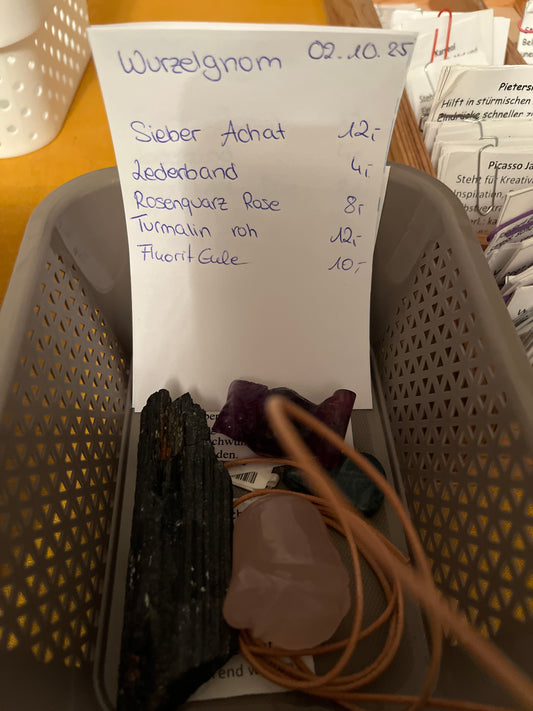 Wurzelgnom 02.10.25
Sieber Achat 12,-
Lederband 4,-
Rosenquarz Rose 8,-
Turmalin roh 12,-
Fluorit Eule 10,-
Pietersi
Hilft in stürmischen
Eindrücke schneller zu
Picasso Ja
Steht für Kreativi
Inspiration,
bstvertra
den.
rend w